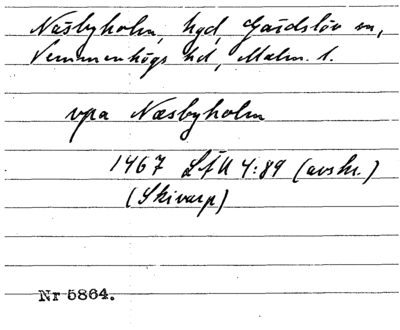 Näsbyholm, hgd, Gärdslöv sn,
Vemmenhögs hd, Malm. l.
vpa Næsbyholm
1467 LfU 4:89 (avskr.)
(Skivarp)
Nr 5864.